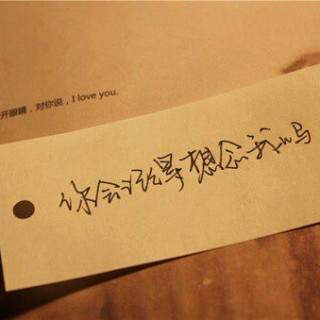 开眼睛，对你说，I love you.
你会经常想念我吗